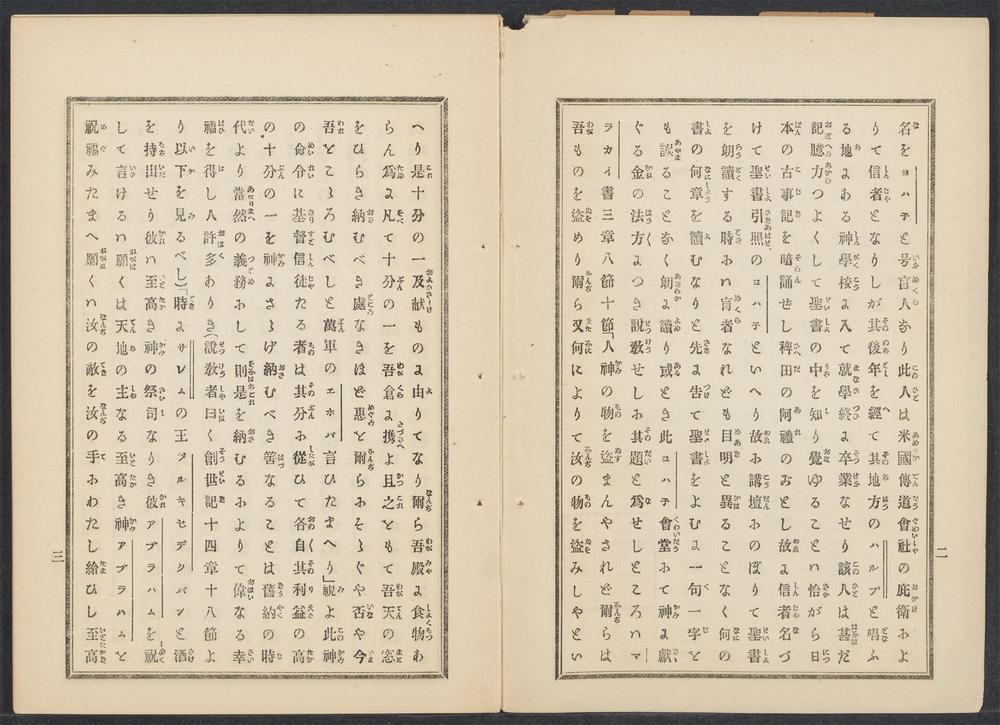 名をヨハチと号盲人なり此人は米國傳道會社の庇衛およ
りて信者となりしが其後年を經て其地方のハルプと唱ふ
る地よある神學校よ入て就學終よ卒業なせり該人は甚だ
記臆力つよくして聖書の中を知り覺ゆること恰がら日
本の古事記を暗誦せし稗田の阿禮のおとし故よ信者名づ
けて聖書引照のヨハチといへり故お講壇おのぼりて聖書
を朗讀する時お盲者なれども目明と異ることなく何の
書の何章を讀むなりと先よ告て聖書をよむよ一句一字と
も誤ることなく朗よ讀り或とき此ヨハチ會堂おて神よ獻
ぐる金の法方よつき說敎せしお其題と爲せしところハマ
ラカイ書三章八節十節「人神の物を盜まんやされど爾らは
吾ものを盜めり爾ら又何によりて汝の物を盜みしやとい
二
へり是十分の一及献ものよ由りてなり爾ら吾殿よ食物あ
らん爲よ凡て十分の一を吾倉よ携よ且之ともて吾天の窓
をひらき納むべき處なきほど惠と爾らおそゝぐや否や今
吾ところろむべしと萬軍のエホバ言ひたまへり」視よ此神
の命令に基督信徒たる者は其分お從ひて各自其利益の高
の十分の一を神よさゝげ納むべき筈なることは舊約の時
代より當然の義務おして則是を納むるおよりて偉なる幸
福を得し人許多ありき(說敎者曰く創世記十四章十八節よ
り以下を見るべし)「時よサレムの王メルキセデクパンと酒
を持出せり彼ハ至高き神の祭司なりき彼アブラハムを祝
して言けるハ願くは天地の主なる至高き神アブラハムと
祝福みたまへ願くハ汝の敵を汝の手おわたし給ひし至高
三